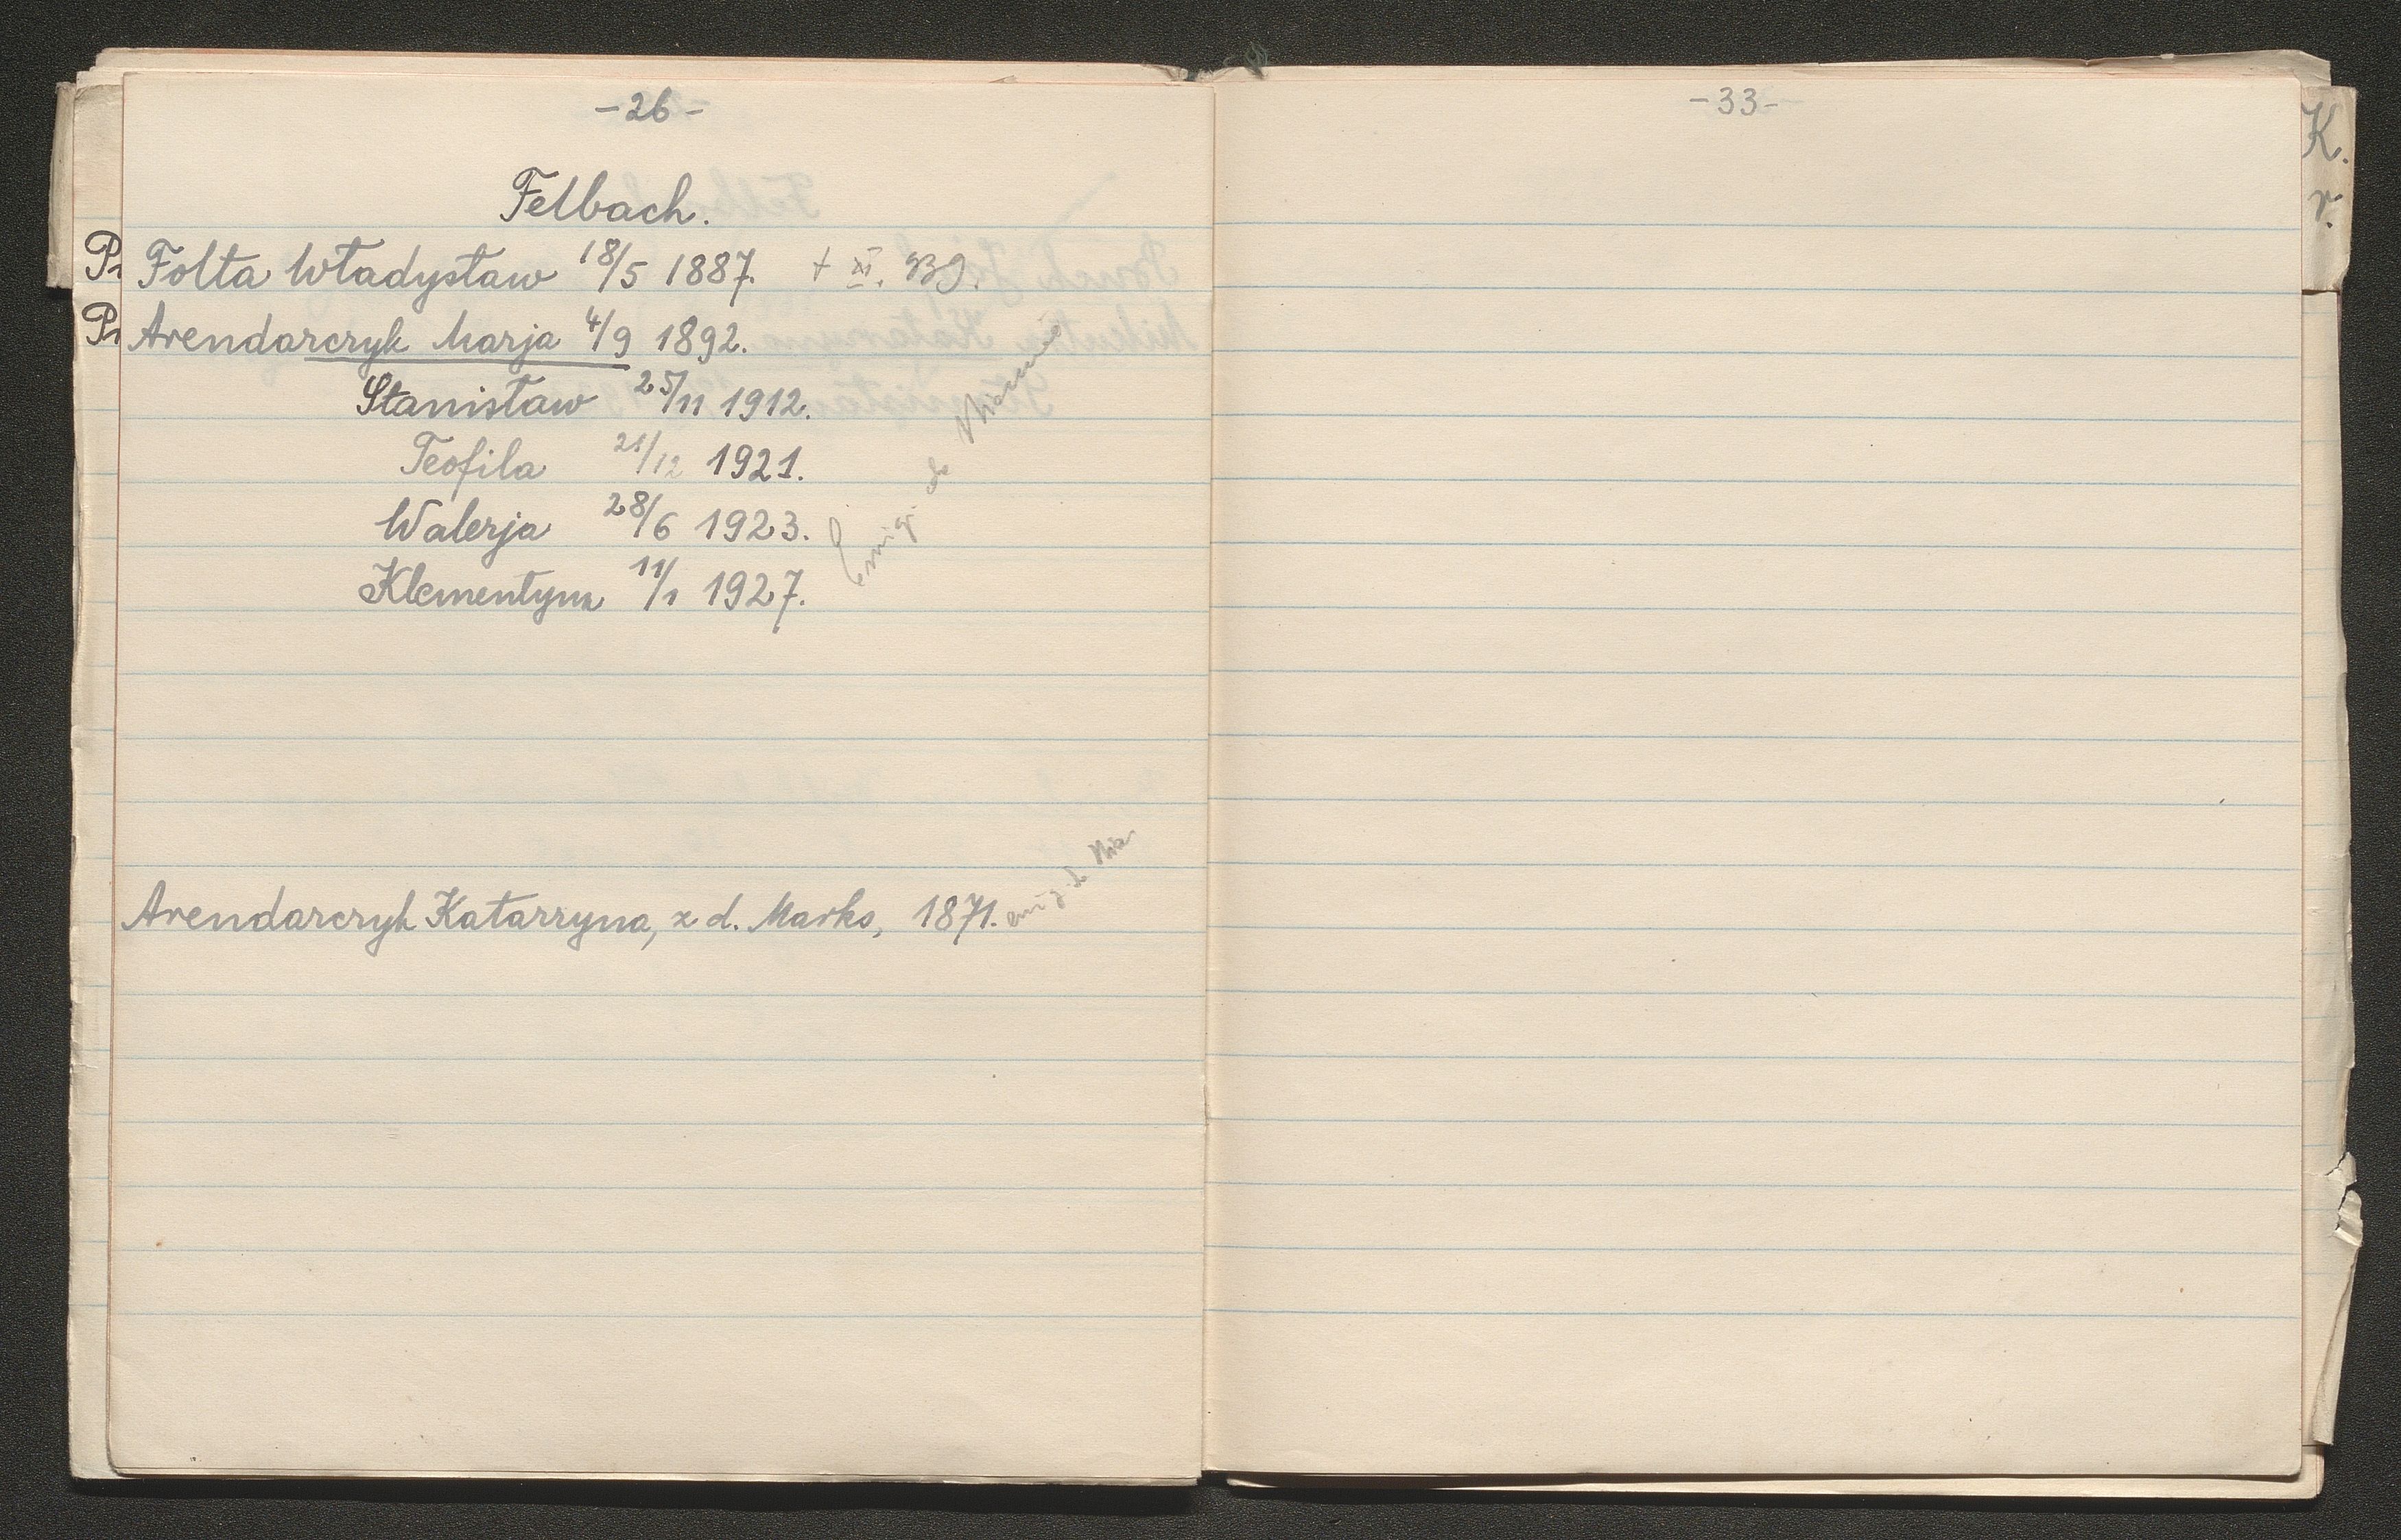 -26-
Felbach.
Folta Władysław 18/5 1887. + XI. 939.
Arendarczyk Marja 4/9 1892.
Stanisław 25/11 1912.
Teofila 21/12 1921.
Walerja 28/6 1923.
Klementyna 11/1 1927.
Emigr. do Niemiec
Arendarczyk Katarzyna, z d. Marks, 1871. emig. do
-33-
K.
r.